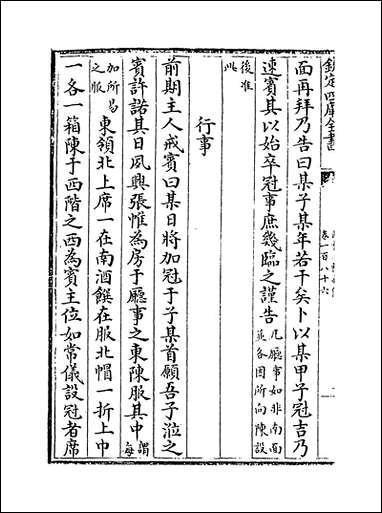 欽定四庫全書
卷一百八十六
面再拜乃告曰某子某年若干矣卜以某甲子冠吉乃
速賓其以始卒冠事庶幾臨之謹告凡廳事如非南面並各因所向陳設
後准此
行事
前期主人戒賓曰某日將加冠于子某首願吾子涖之
賓許諾其日夙興張帷為房于廳事之東陳服其中謂每
加所易之服東領北上席一在南酒饌在服北帽一折上巾
一各一箱陳于西階之西為賓主位如常儀設冠者席